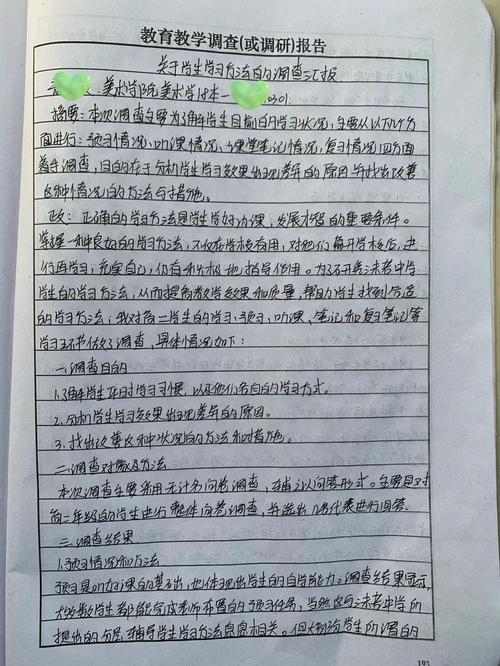 教育教学调查(或调研)报告
关于学生学习方法的调查汇报
美术学院美术学18本一 0301
摘要：本次调查主要为了解学生目前的学习状况，主要从以下几个方
面进行：预习情况、听课情况、上课笔记情况，复习情况四方面
着手调查，目的在于分析学生学习效果出现差异的原因并找出改善
这种情况的方法与措施。
正文：正确的学习方法是学生学好功课、发展才智的重要条件。
掌握一种良好的学习方法，不仅在学校有用，对他们离开学校后，进
行再学习，充实自己，仍有积极地指导作用。为了研究
学生的学习方法，从而提高教学效果和质量，帮助学生找到合适
的学习方法，我对高二学生的学习、预习、听课、笔记和复习笔记等
学习环节做了调查，具体情况如下：
一、调查目的
1.了解学生平时学习习惯，以及他们各自的学习方式。
2.分析学生学习效果出现差异的原因。
3.找出改善这种状况的方法和对措施。
二、调查对象及方法
本次调查主要采用无计名问卷调查，辅之以问答形式。主要是对
高二年级的学生进行整体问卷调查，并选出几名代表进行问答。
三、调查结果
1.预习情况和方法
预习是听好课的基础，也体现出学生的自学能力。调查结果显示，
大多数学生都能完成老师布置的预习任务，当然这与中学所
提出的分层辅导学生学习方法息息相关。但大部分学生所谓的
193